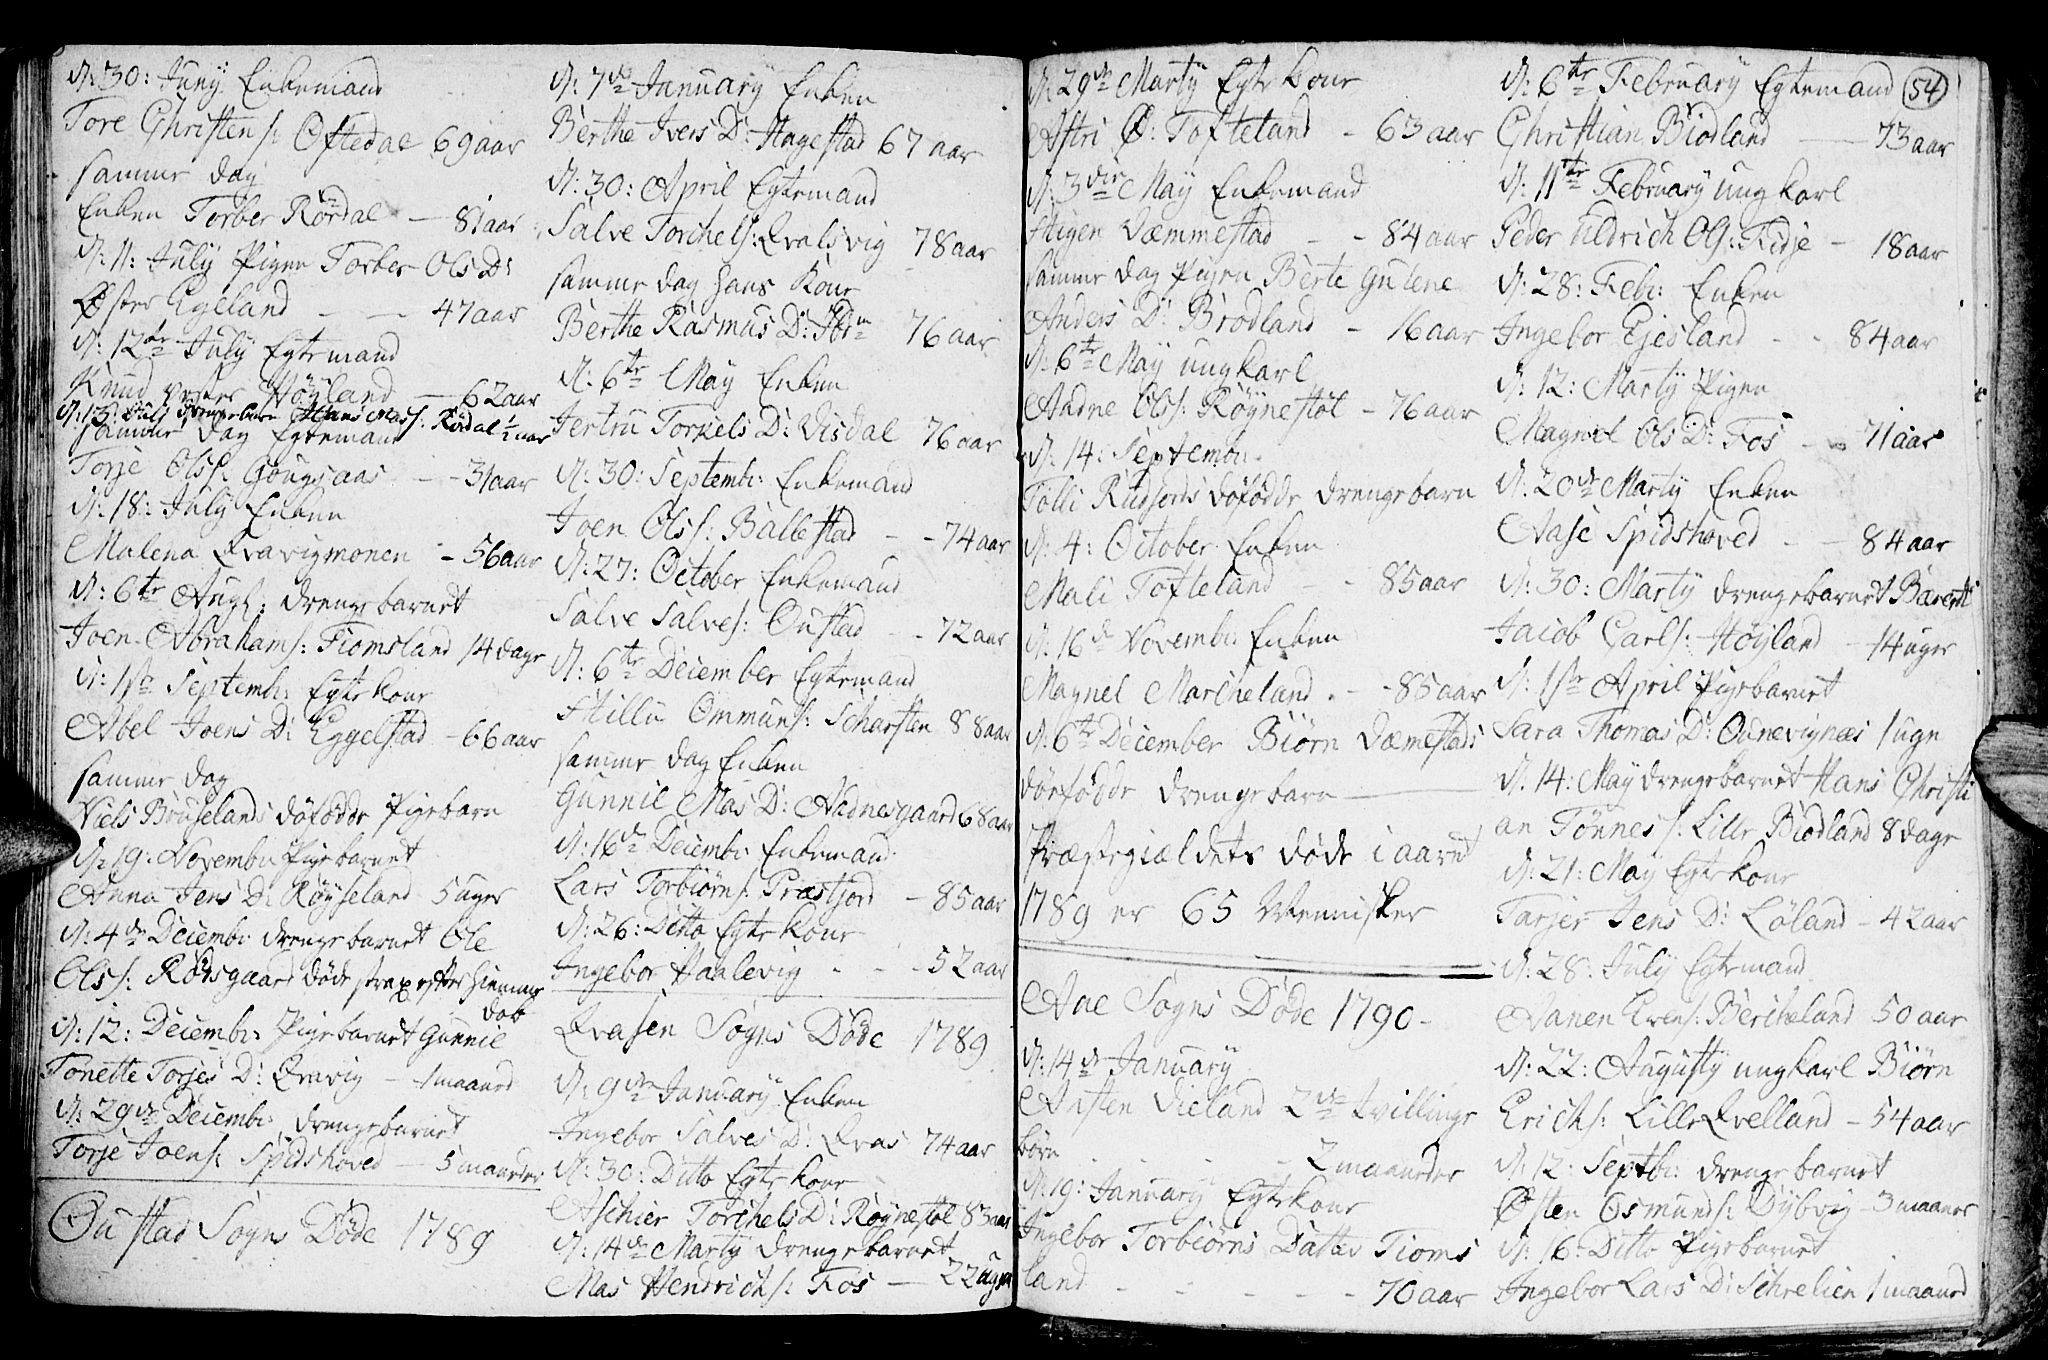 d: 30: Juny Enkemand
Tore Christens: Oftedal 69 aar
samme dag
Enken Torber Rördal — 81 aar
d: 11: July Pigen Torber Ols D:
Øster Egeland — — 47 aar
d: 12te July Egtemand
Knud vester Höyland — 62 aar
d: 13: July drengebarn Hans Mas s: Rördal ½ aar
samme dag Egtemand
Torje Ols s: Gougsaas — 31 aar
d: 18: July Enken
Malena Qvavigmonen - 56 aar
d: 6te Aug: drengebarnet
Joen Abrahams: Fiomsland 14 dage
d: 1ste Septemb: Egtekone
Abel Joens D: Eggelstad - 66 aar
samme dag
Niels Bruselands döfödde Pigebarn
d: 19: Novemb: Pigebarnet
Anna Jens D: Röyseland 5 uger
d: 4de Decemb: drengebarnet Ole
Ols s: Rödsgaard döde strax efter hiemme
dob
d: 12: Decemb: Pigebarnet Gunnil
Tonette Torjes D: Qvavig — 1 maaned
d: 29de Decemb: drengebarnet
Torje Joens: Spidshoved — 5 maaneder
Oustad Sogns Döde 1789
d: 7de January Enken
Berthe Ivers D: Hagestad 67 aar
d: 30: April Egtemand
Salve Torchels: Qvalsvig 78 aar
samme dag hans Kone
Berthe Rasmus D: Ibm 76 aar
d: 6te May Enken
Jertru Torkels D: Visdal 76 aar
d: 30: Septemb: Enkemand
Joen Ols s: Ballestad - - 74 aar
d: 27: October Enkemand
Salve Salves: Oustad - - 72 aar
d: 6te December Egtemand
Stillu Ommuns: Scharsten 88 aar
samme dag Enken
Gunnil Mas D: Aadnesgaard 68 aar
d: 16de Decemb: Enkemand
Lars Torbiörns: Præstjord - 85 aar
d: 26: Ditto Egtekone
Ingebor Haalevig - - - 52 aar
Qvasen Sogns Döde 1789
d: 9de January Enken
Ingebor Salves D: Qvas 74 aar
d: 30: Ditto Egtekone
Aschier Torchels D: Röynestöl 83 aar
d: 14de Marty drengebarnet
Mas Hendrichs: Fos — 22 uger
d: 29de Marty Egtekone
Astri Ø: Tofteland - 63 aar
d: 3die May Enkemand
Stigen Væmmestad - - 84 aar
samme dag Pigen Berte Gulene
Anders D: Brodland - 16 aar
d: 6te May ungkarl
Aadne Ols s: Röynestöl - 76 aar
d: 14: Septemb:
Tolli Rudsens döfödde drengebarn
d: 4: October Enken
Mali Tofteland - - 85 aar
d: 16de Novemb: Enken
Magnel Marcheland - - 85 aar
d: 6te December Biörn Væmestads
döefödde drengebarn —
Præstegieldets döde i aaret
1789 er 65 Mennisker
Aae Sogns Döde 1790 -
d: 14de January
Aasten Vieland 2de tvillinge
börn - - - - - 2 maaneder
d: 19: January Egtekone
Ingebor Torbiörns Datter Fioms
land - - - - - - 70 aar
54
d: 6te February Egtemand
Christian Biodland — 73 aar
d: 11te February ungkarl
Peder Eldrich Ols: Fidje - 18 aar
d: 28: Feb: Enken
Ingebor Ejesland - - 84 aar
d: 12: Marty Pigen
Magnel Ols D: Fos - - 71 aar
d: 20de Marty Enken
Aase Spidshoved - - 84 aar
d: 30: Marty drengebarnet Barent
Jacob Carls: Höyland - 14 uger
d: 1ste April Pigebarnet
Sara Thomas D: Ounevignæs 1 uge
d: 14: May drengebarnet Hans Christi
an Tönnes s: Lille Biodland 8 dage
d: 21: May Egtekone
Tarjer Jens D: Löland - 42 aar
d: 28: July Egtemand
Aanen Evens: Bercheland 50 aar
d: 22: Augusty ungkarl Biörn
Erichs: Lille Qvelland - 54 aar
d: 12: Septb: drengebarnet
Østen Osmunds: Dybvig - 3 maaner
d: 16: Ditto Pigebarnet
Ingebor Lars D: Schrelien 1 maaned